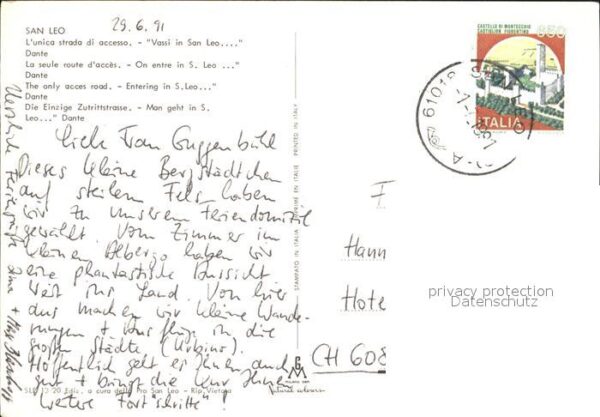 29.6.91
SAN LEO
L'unica strada di accesso. - "Vassi in San Leo...."
Dante
La seule route d'accès. - On entre in S. Leo ..."
Dante
The only acces road. - Entering in S. Leo...."
Dante
Die Einzige Zutrittstrasse. - Man geht in S.
Leo..." Dante
Liebe Frau Guggenbühl
Dieses kleine Bergstädtchen
auf steilem Fels haben
wir zu unserem Feriendomizil
gewählt. Vom Zimmer im
kleinen Albergo haben wir
eine phantastische Aussicht
weit ins Land. Von hier
aus machen wir kleine Wande-
rungen + Ausflüge in die
großen Städte (Urbino).
Hoffentlich geht es Ihnen auch
gut + bringt die Kur Ihnen
weitere Fort"schritte"!
Herzliche Feriengrüße
STAMPATO IN ITALIA
PRINTED IN ITALY
CASTELLO DI MONTECCHIO
CASTIGLION FIORENTINO
650
ITALIA
61018
F
Hann
Hote
CH 608
privacy protection
Datenschutz
Ediz. a cura della Pro San Leo - Rip. Vietata